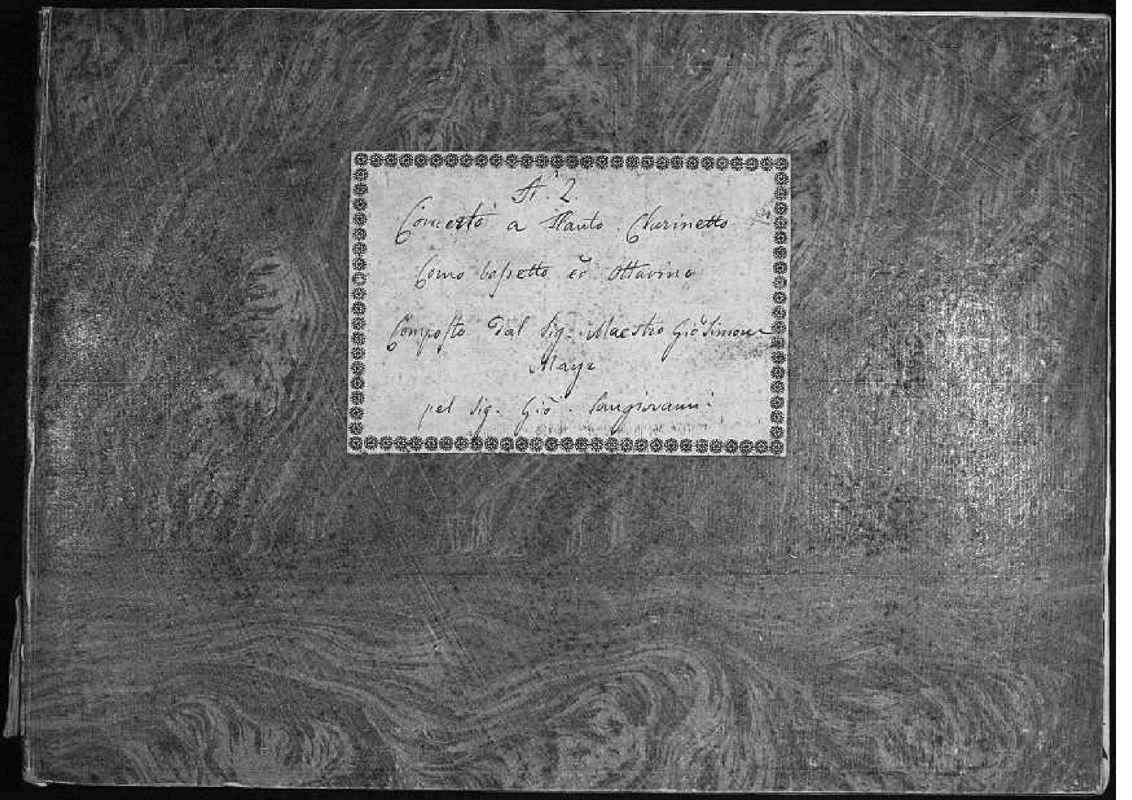 N.º 2.
Concerto a Flauto Clarinetto
Corno bassetto ed Ottavino
Composto dal Sig: Maestro Giõ Simone
Mayr
pel Sig. Giõ. Sangiovanni